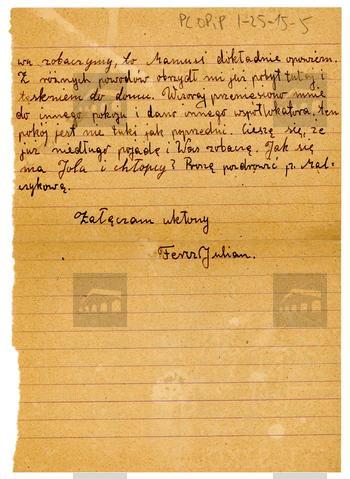 PCOPiP 1-25-15-5
wu zobaczymy, to Mamusi dokładnie opowiem.
Z różnych powodów obrzydł mi już pobyt tutaj i
tęsknię do domu. Wczoraj przeniesiono mnie
do innego pokoju i dano innego współlokatora. Ten
pokój jest nie taki jak poprzedni. Cieszę się, że
już niedługo pojadę i Was zobaczę. Jak się
ma Jola i chłopcy? Proszę pozdrowić p. Mal-
czykową.
Załączam ukłony
Julian.